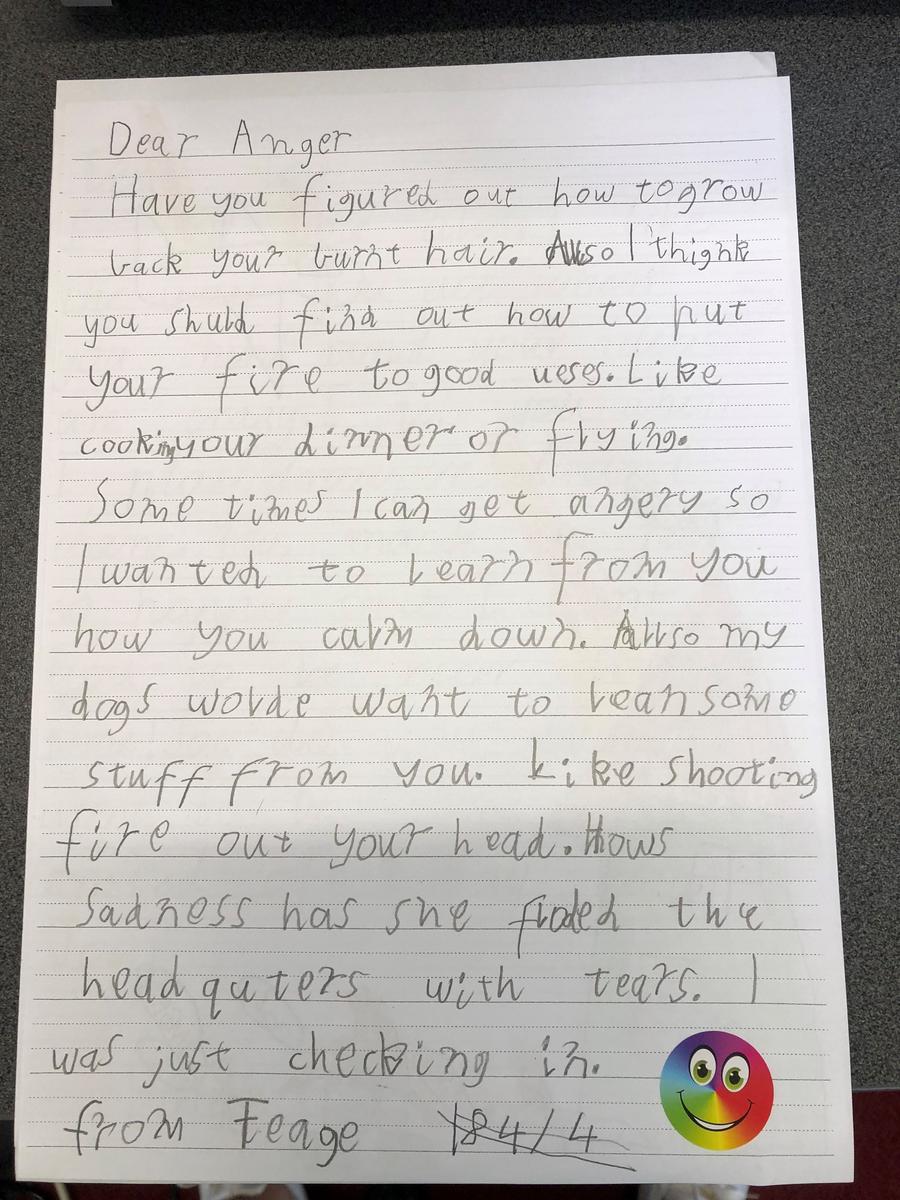 Dear Anger
Have you figured out how to grow
back your burnt hair. Allso I thighk
you shuld find out how to put
your fire to good ueses. Like
cooking your dinner or flying.
Some times I can get angery so
I wanted to learn from you
how you calm down. Allso my
dogs wolde want to lean some
stuff from you. Like shooting
fire out your head. Hows
Sadness has she floded the
head quters with tears. I
was just checking in.
from Feage 184/4